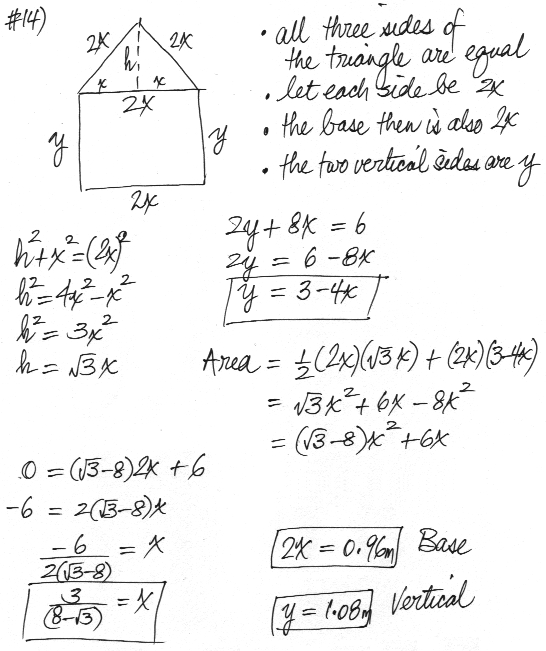 #14)
2x 2x
h
x x
2x
y y
2x
• all three sides of
the triangle are equal
• let each side be 2x
• the base then is also 2x
• the two vertical sides are y
h²+x²=(2x)²
h²=4x²-x²
h²= 3x²
h = √3x
2y+8x = 6
2y = 6-8x
y = 3-4x
Area = ½(2x)(√3x)+(2x)(3-4x)
= √3x²+6x-8x²
= (√3-8)x²+6x
0 = (√3-8)2x+6
-6 = 2(√3-8)x
-6/2(√3-8) = x
3/(8-√3) = x
2x = 0.96m Base
y = 1.08m Vertical